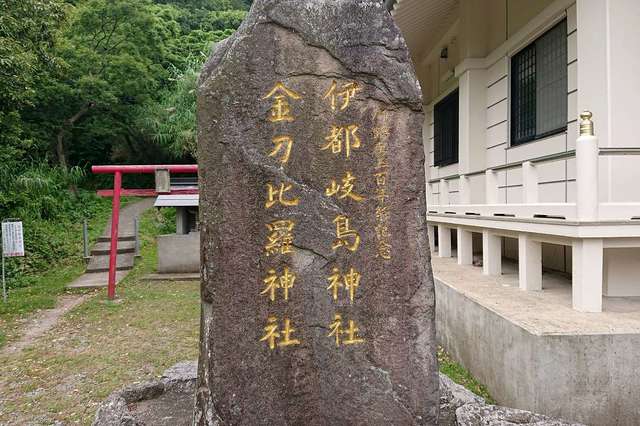 百年祭記念
伊都岐島神社
金刀比羅神社